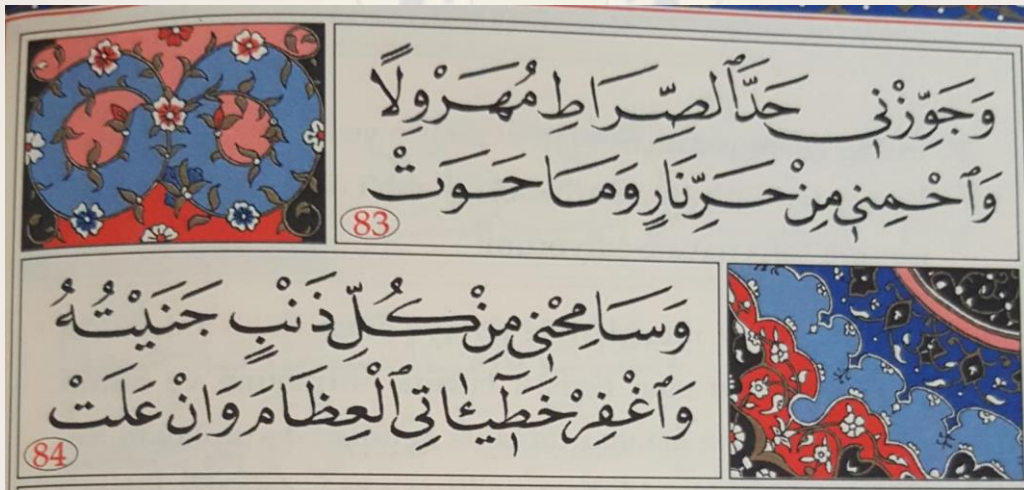 وَجَوِّزْنِي حَدَّ ٱلصِّرَاطِ مُهَرْوِلًا
وَٱحْمِنِي مِنْ حَرِّ نَارٍ وَمَا حَوَتْ
83
وَسَامِحْنِي مِنْ كُلِّ ذَنْبٍ جَنَيْتُهُ
وَٱغْفِرْ خَطَٓيـَٔاتِي ٱلْعِظَامَ وَاِنْ عَلَتْ
84